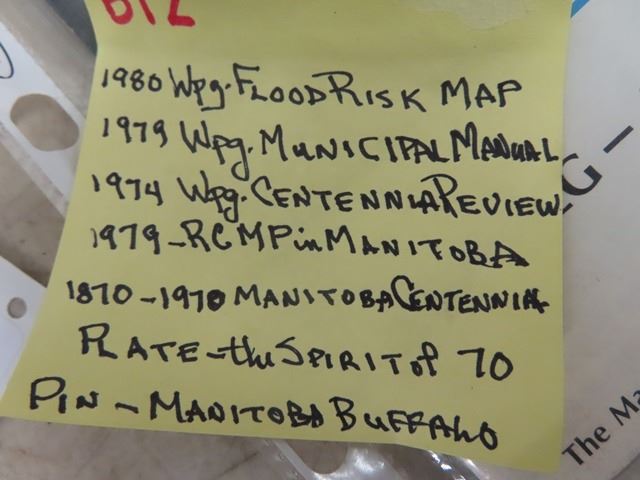 B12
1980 Wpg. FLOOD RISK MAP
1979 Wpg. MUNICIPAL MANUAL
1974 Wpg. CENTENNIAL REVIEW
1979 - RCMP in MANITOBA
1870 - 1970 MANITOBA CENTENNIAL
PLATE - the SPIRIT of 70
PIN - MANITOBA BUFFALO
G -
The Ma